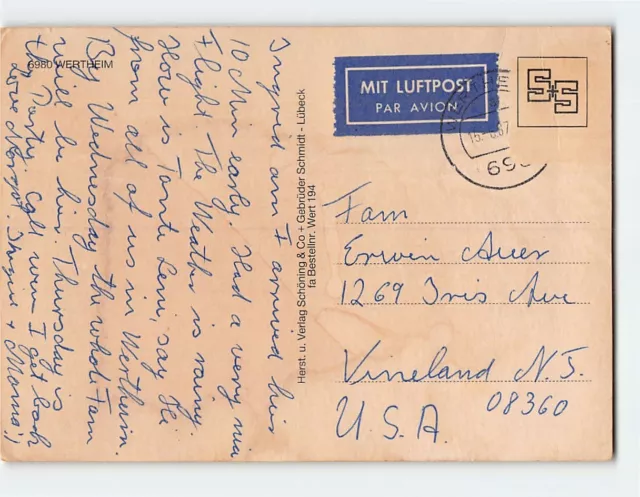 6980 WERTHEIM
Ingrid am I arrived hier
10 Min early. Had a very nice
Flight The Weather is rainy.
How is Tante Leni, say Hi
from all of us in Wertheim.
By Wednesday the whole Fam
will be hier Thursday is
the Party call wen I get back
Love Margot, Ingrid + Mama!
Herst. u. Verlag Schöning & Co + Gebrüder Schmidt - Lübeck
fa Bestellnr. Wert 194
MIT LUFTPOST
PAR AVION
S+S
15.-6.87
698
Fam
Erwin Auer
1269 Iris Ave
Vineland N.J.
08360
U.S.A.